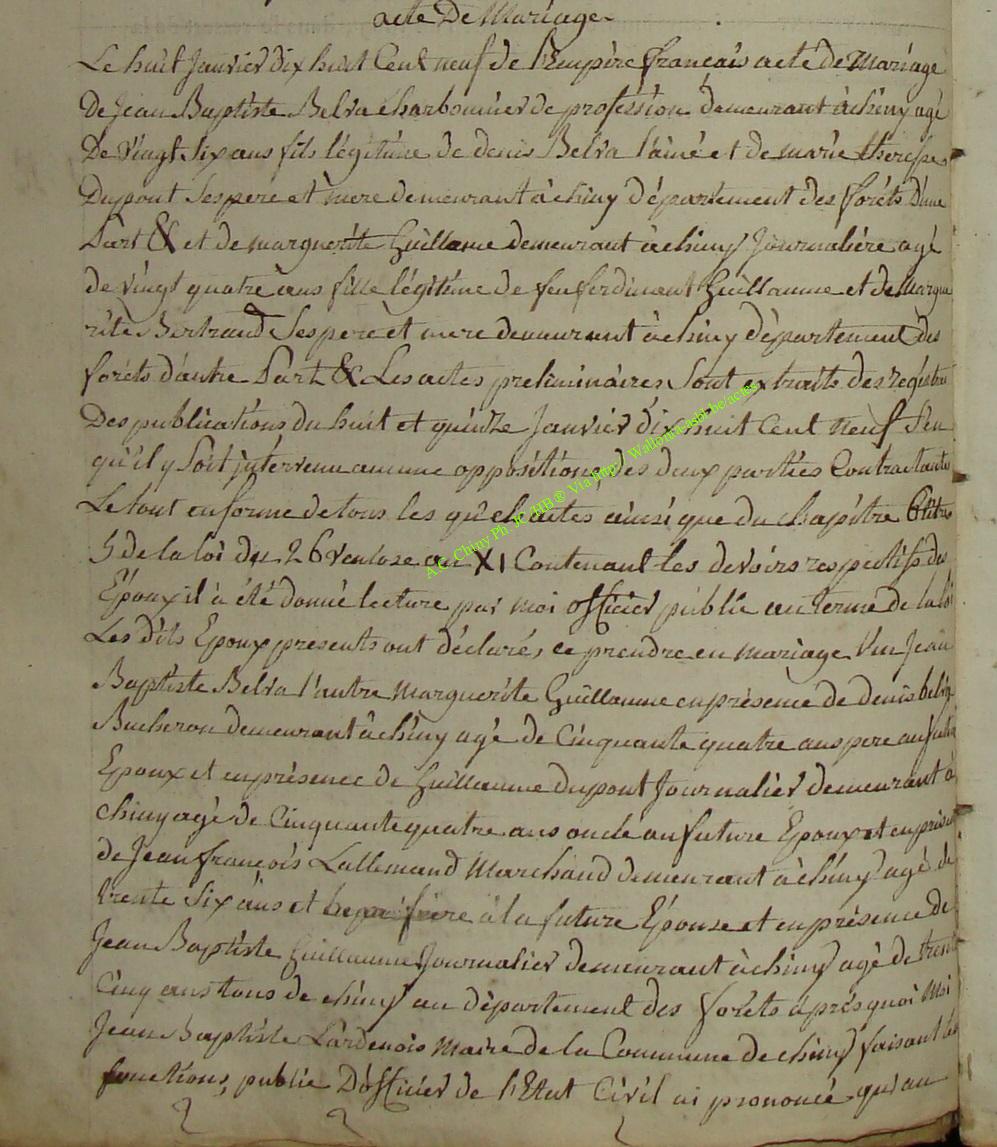 acte De Mariage
Le huit Janvier dix huit Cent neuf de l'Empire francais acte de Mariage
De Jean Baptiste Belva charbonnier de profession demeurant à chiny agé
De vingt Six ans fils légitime de denis Belva l'ainé et de marie therese
Dupont Ses pere et mere demeurant à chiny département des forêts D'une
Part & et de marguerite Guillaume demeurant à chiny Journalière agé
de vingt quatre ans fille légitime de feu ferdinant Guillaume et de Margue
rite Bertrand Ses pere et mere demeurant à chiny département des
forêts d'autre Part & Les actes preliminaires Sont extraits des registres
Des publications du huit et quinze Janvier dix huit Cent neuf S'en
qu'il y Soit intervenu aucune oppositions des deux parties Contractantes
Le tout en forme de tous les qu'els actes ainsi que du chapitre 6 titre
5 de la loi du 26 ventose an XI Contenant les devoirs respectifs des
Epoux il à été donné lecture par moi officier public au terme de la loi
Les dits Epoux presents ont déclarés ce prendre en mariage l'un Jean
Baptiste Belva l'autre Marguerite Guillaume en présence de denis belva
Bucheron demeurant à chiny agé de Cinquante quatre ans pere au futur
Epoux et en présence de Guillaume dupont Journalier demeurant à
chiny agé de Cinquante quatre ans oncle au future Epoux et en présence
de Jean françois Lallemand Marchand demeurant à chiny agé de
trente Six ans et beau frère à la future Epouse et en présence de
Jean Baptiste Guillaume Journalier demeurant à chiny agé de trente
Cinq ans tous de chiny au département des forêts après quoi Moi
Jean Baptiste Lardenois Maire de la Commune de chiny faisant les
fonctions public D'officier de l'Etat Civil ai prononcé qu'au
A.C. Chiny Ph. JC-HB® Via http// Wallonia-asbl.be/actes/